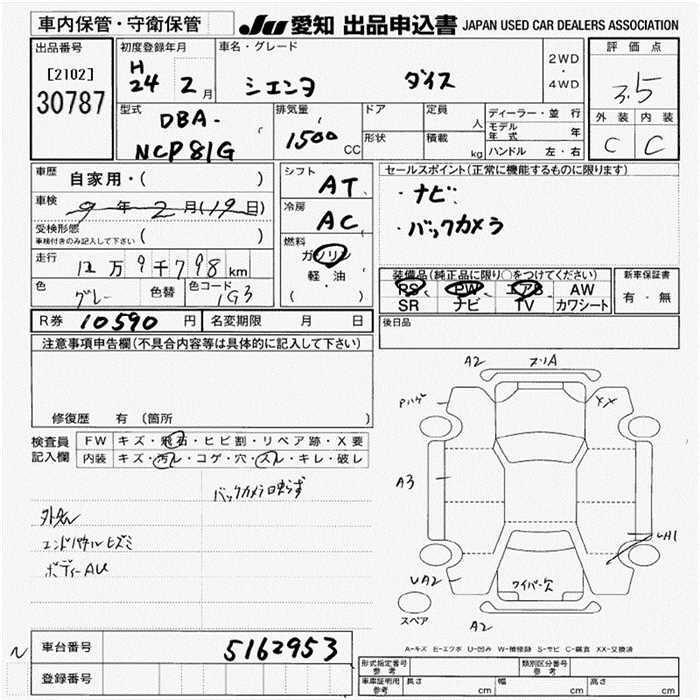 車内保管・守衛保管
JU 愛知 出品申込書 JAPAN USED CAR DEALERS ASSOCIATION
出品番号
[2102]
30787
初度登録年月
H
24 2月
車名・グレード
シエンタ ダイス
2WD
・
4WD
評価点
3.5
外装 内装
C C
型式
DBA-
NCP81G
排気量
1500 CC
ドア
形状
定員 人
積載 kg
ディーラー・並行
モデル年式 年
ハンドル 左・右
車歴 自家用・( )
車検 9年2月(19日)
受検形態
車検付きのみ記入して下さい ( )
走行 万9千798km
色 グレー 色替 色コード 1G3
シフト AT
冷房 AC
燃料
ガソリン
軽・油
( )
セールスポイント(正常に機能するものに限ります)
・ナビ
・バックカメラ
装備品(純正品に限り○をつけてください)
PS PW エアB AW
SR ナビ TV カワシート
新車保証書
有・無
後日品
R券 10590円 名変期限 月 日
注意事項申告欄(不具合内容等は具体的に記入して下さい)
修復歴 有(箇所 )
検査員
記入欄
FW キズ・飛石・ヒビ割・リペア跡・X要
内装 キズ・汚レ・コゲ・穴・スレ・キレ・破レ
バックカメラ映らず
エンドパネルヒズミ
A2
XX
A3
UA2
ワイパー欠
A2
スペア
A-キズ E-エクボ U-凹み W-補修跡 S-サビ C-腐食 XX-交換済
車台番号 5162953
登録番号
形式指定番号
参考
類別区分番号
参考
車庫証明用
参考
長さ cm 幅 cm 高さ cm